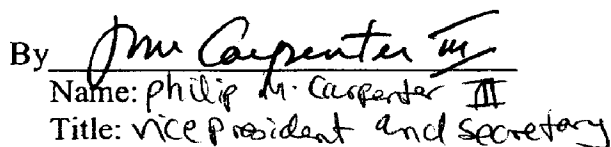 By PM Carpenter III
Name: philip M. Carpenter III
Title: vice president and secretary